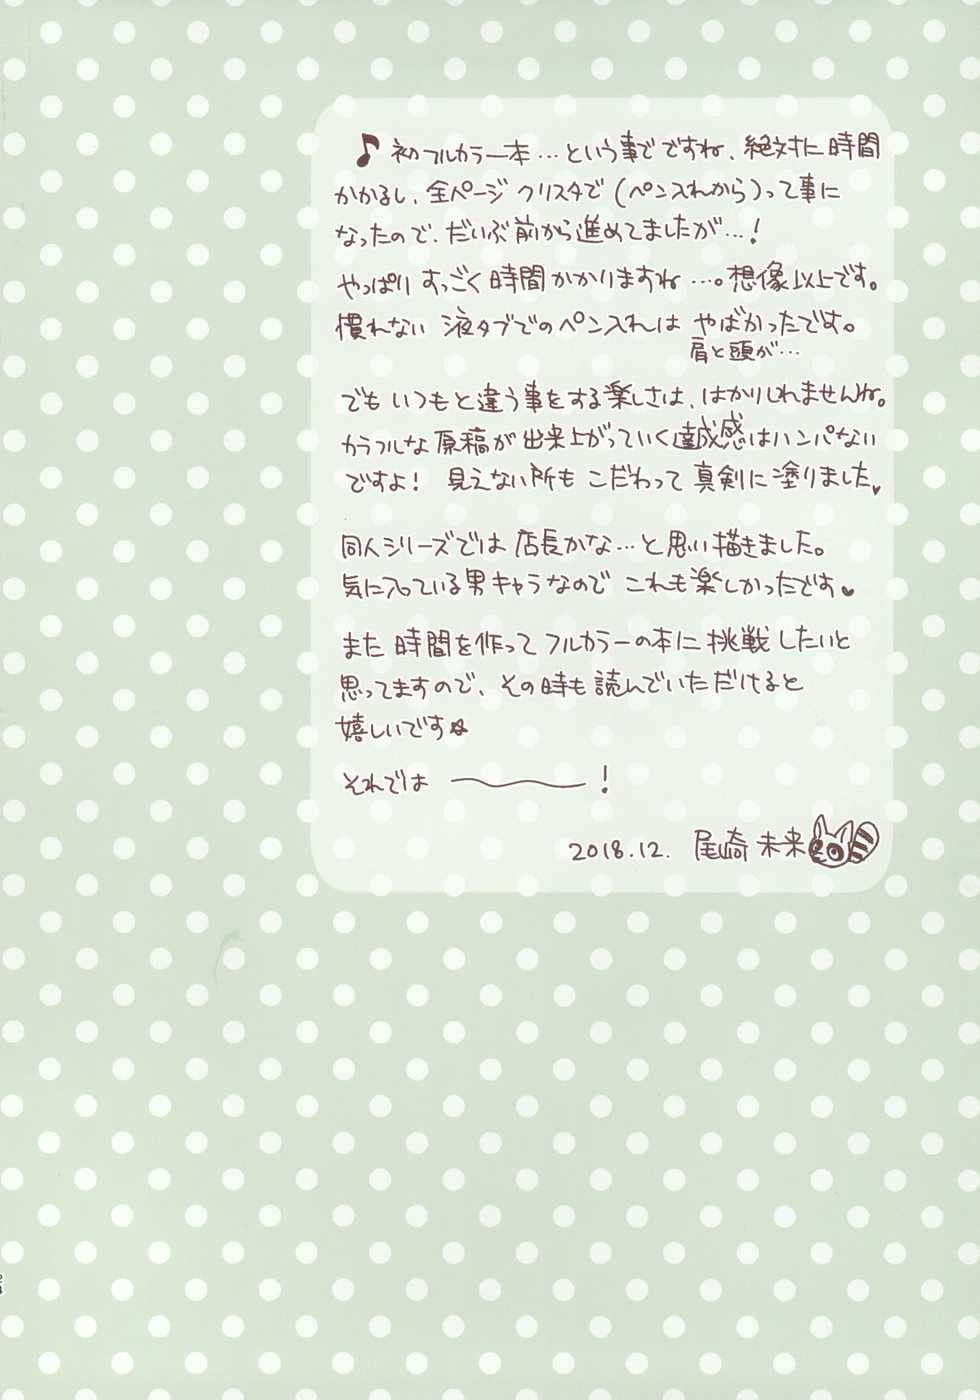 ♪初フルカラー本…という事でですね、絶対に時間
かかるし、全ページクリスタで(ペン入れから)って事に
なったので、だいぶ前から進めてましたが…!
やっぱりすっごく時間かかりますね…。想像以上です。
慣れない液タブでのペン入れは やばかったです。
肩と頭が…
でもいつもと違う事をする楽しさは、はかりしれませんね。
カラフルな原稿が出来上がっていく達成感はハンパない
ですよ! 見えない所もこだわって真剣に塗りました♥
同人シリーズでは店長かな…と思い描きました。
気に入っている男キャラなので これも楽しかったです♥
また時間を作ってフルカラーの本に挑戦したいと
思ってますので、その時も読んでいただけると
嬉しいです☆
それでは〜!
2018.12. 尾崎未来